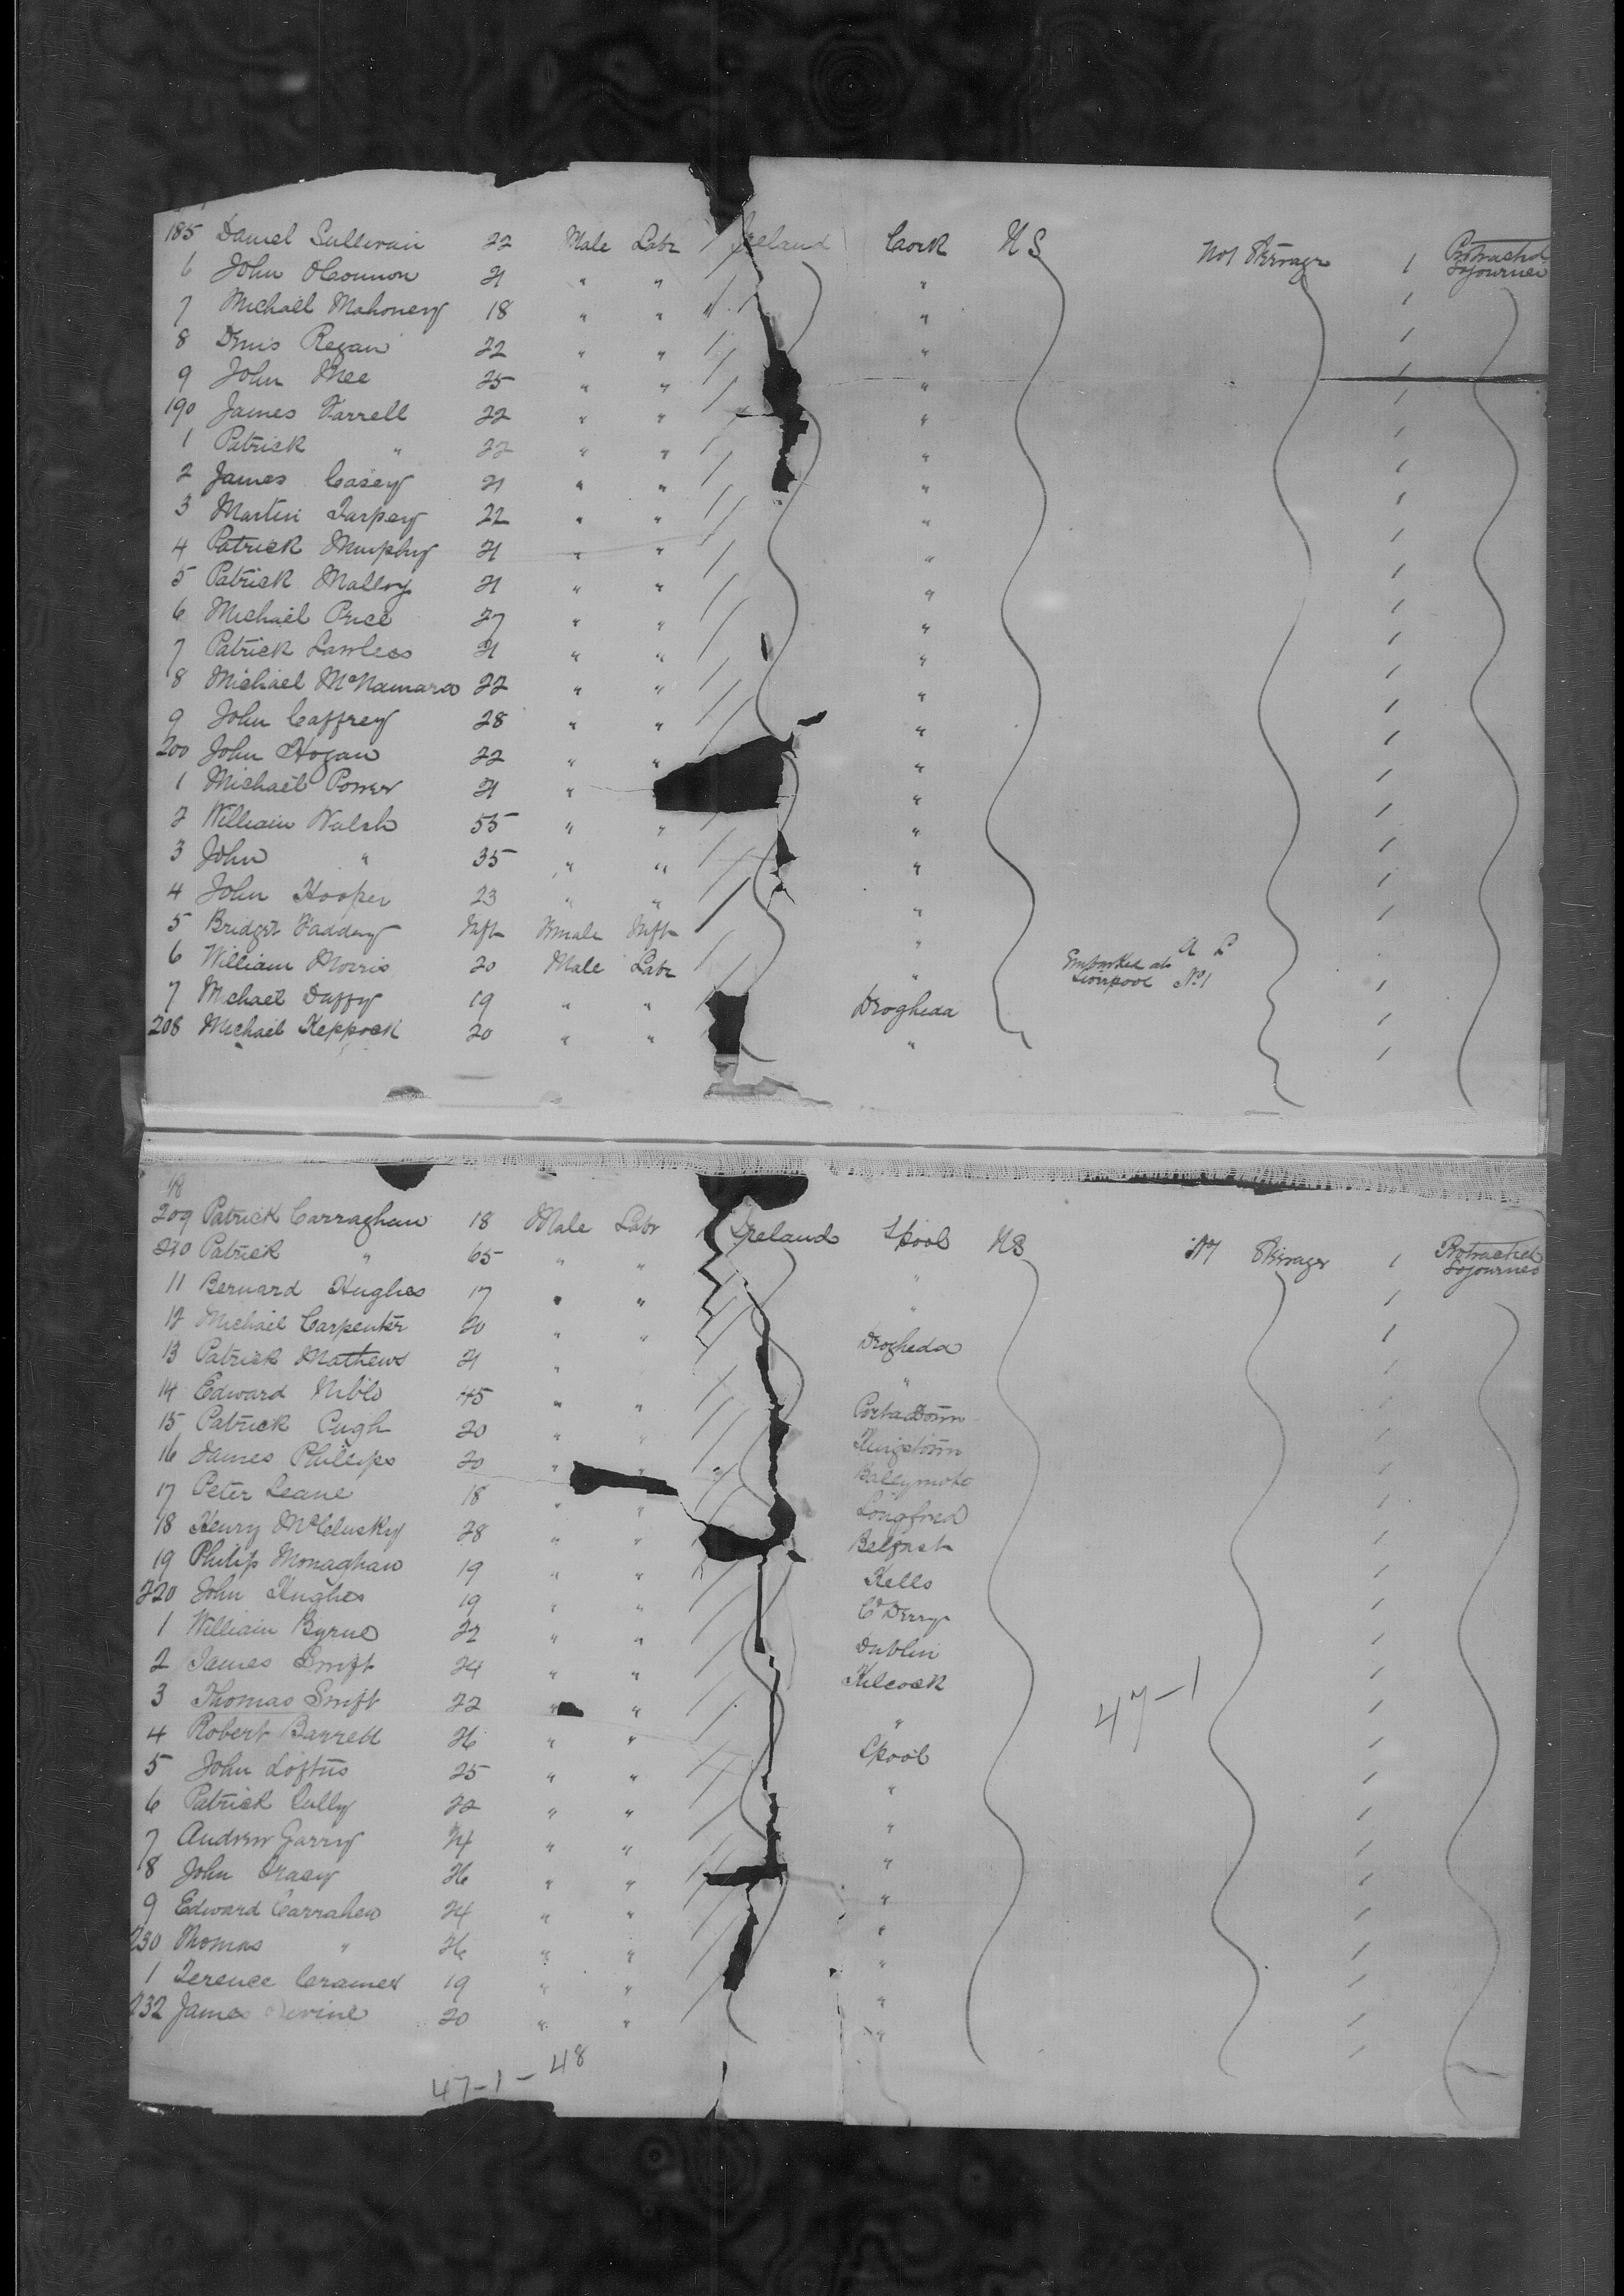 185 Daniel Sullivan 22 Male Labr / Ireland Cork U S No 1 Steerage / Protracted Sojourner
6 John OConnor 21 " " / "  /
7 Michael Mahoney 18 " " / " /
8 Denis Regan 22 " " / " /
9 John Shee 25 " " / " /
190 James Farrell 22 " " / " /
1 Patrick " 22 " " / " /
2 James Casey 21 " " / " /
3 Martin Tarpey 22 " " / " /
4 Patrick Murphy 21 " " / " /
5 Patrick Malloy 21 " " / " /
6 Michael Price 27 " " / " /
7 Patrick Lawless 21 " " / " /
8 Michael McNamara 22 " " / " /
9 John Caffrey 28 " " / " /
200 John Hogan 22 " " " /
1 Michael Power 21 " " /
2 William Walsh 55 " " / " /
3 John " 35 " " / " /
4 John Hooper 23 " " / " /
5 Bridget Fadden Inft Female Inft / "
6 William Morris 20 Male Labr / " Embarked at Liverpool A L No 1 /
7 Michael Duffy 19 " " Drogheda /
208 Michael Keppock 20 " " " /
48
209 Patrick Carraghan 18 Male Labr Ireland Lpool U S No 1 Steerage / Protracted Sojourner
210 Patrick " 65 " " " /
11 Bernard Hughes 17 " " / " /
12 Michael Carpenter 20 " " / Drogheda /
13 Patrick Mathews 21 " / " /
14 Edward Niblo 45 " " / PortaDown /
15 Patrick Pugh 20 " " / Kingstown /
16 James Phillips 20 " " / Ballymote /
17 Peter Leane 18 " " / Longford /
18 Henry McClusky 28 " " Belfast /
19 Philip Monaghan 19 " " / Kells /
220 John Hughes 19 " " / Co Derry /
1 William Byrne 22 " " / Dublin /
2 James Swift 24 " " / Kilcock /
3 Thomas Swift 22 " " / " /
47-1
4 Robert Barrett 26 " " / Lpool /
5 John Loftus 25 " " / " /
6 Patrick Cully 22 " " / " /
7 Andrew Garry 24 " " / " /
8 John Tracey 26 " " / " /
9 Edward Carraher 24 " " / " /
230 Thomas " 26 " " / " /
1 Terence Cramer 19 " " / " /
232 James Devine 20 " " / " /
47-1-48